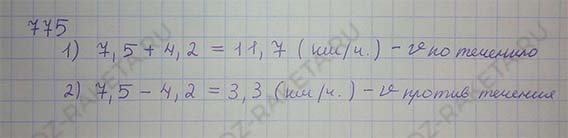 775
1) 7,5 + 4,2 = 11,7 (км/ч.) - v по течению
2) 7,5 - 4,2 = 3,3 (км/ч.) - v против течения